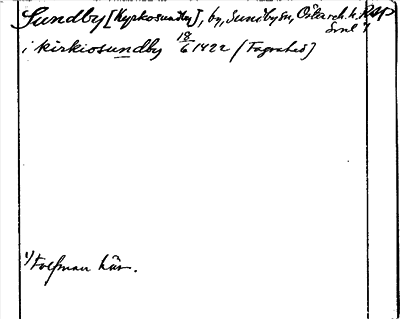 Sundby [Kyrkosundby], by, Sundby sn, Österreh. h. RAp
Sml 1)
i kirkiosundby 18/6 1422 (Fogvahed)
1) Tolfman här.